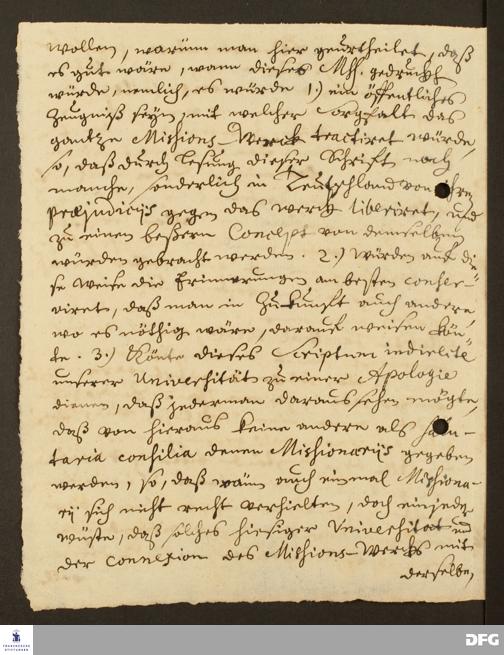 wollen, warum man hier geurtheilet, daß
es gut wäre, wann dieses Mss. gedruckt
würde, nemlich, es würde 1.) ein öffentliches
Zeugniß seyn, mit welcher Sorgfalt das
gantze Missions-Werck tractiret würde,
so, daß durch Lesung dieser Schrifft noch
manche, sonderlich in Teutschland von ihren
praejudiciis gegen das werck liberiret, und
zu einem beßern Concept von demselben
würden gebracht werden. 2.) würden auf die-
se Weise die Erinnerungen am besten conser-
viret, daß man in Zukunfft auch andere,
wo es nöthig wäre, darauf weisen kön-
te. 3.) Könte dieses Scriptum indirecte
unserer Universität zu einer Apologie
dienen, daß jederman daraus sehen mögte,
daß von hieraus keine andere als salu-
taria consilia denen Missionariis gegeben
werden, so, daß wann auch einmal Missiona-
rii sich nicht recht verhielten, doch ein jeder
wüste, daß solches hiesiger Universitaet und
der Connexion des Missions-Wercks mit
derselben
FRANCKESCHE
STIFTUNGEN
DFG